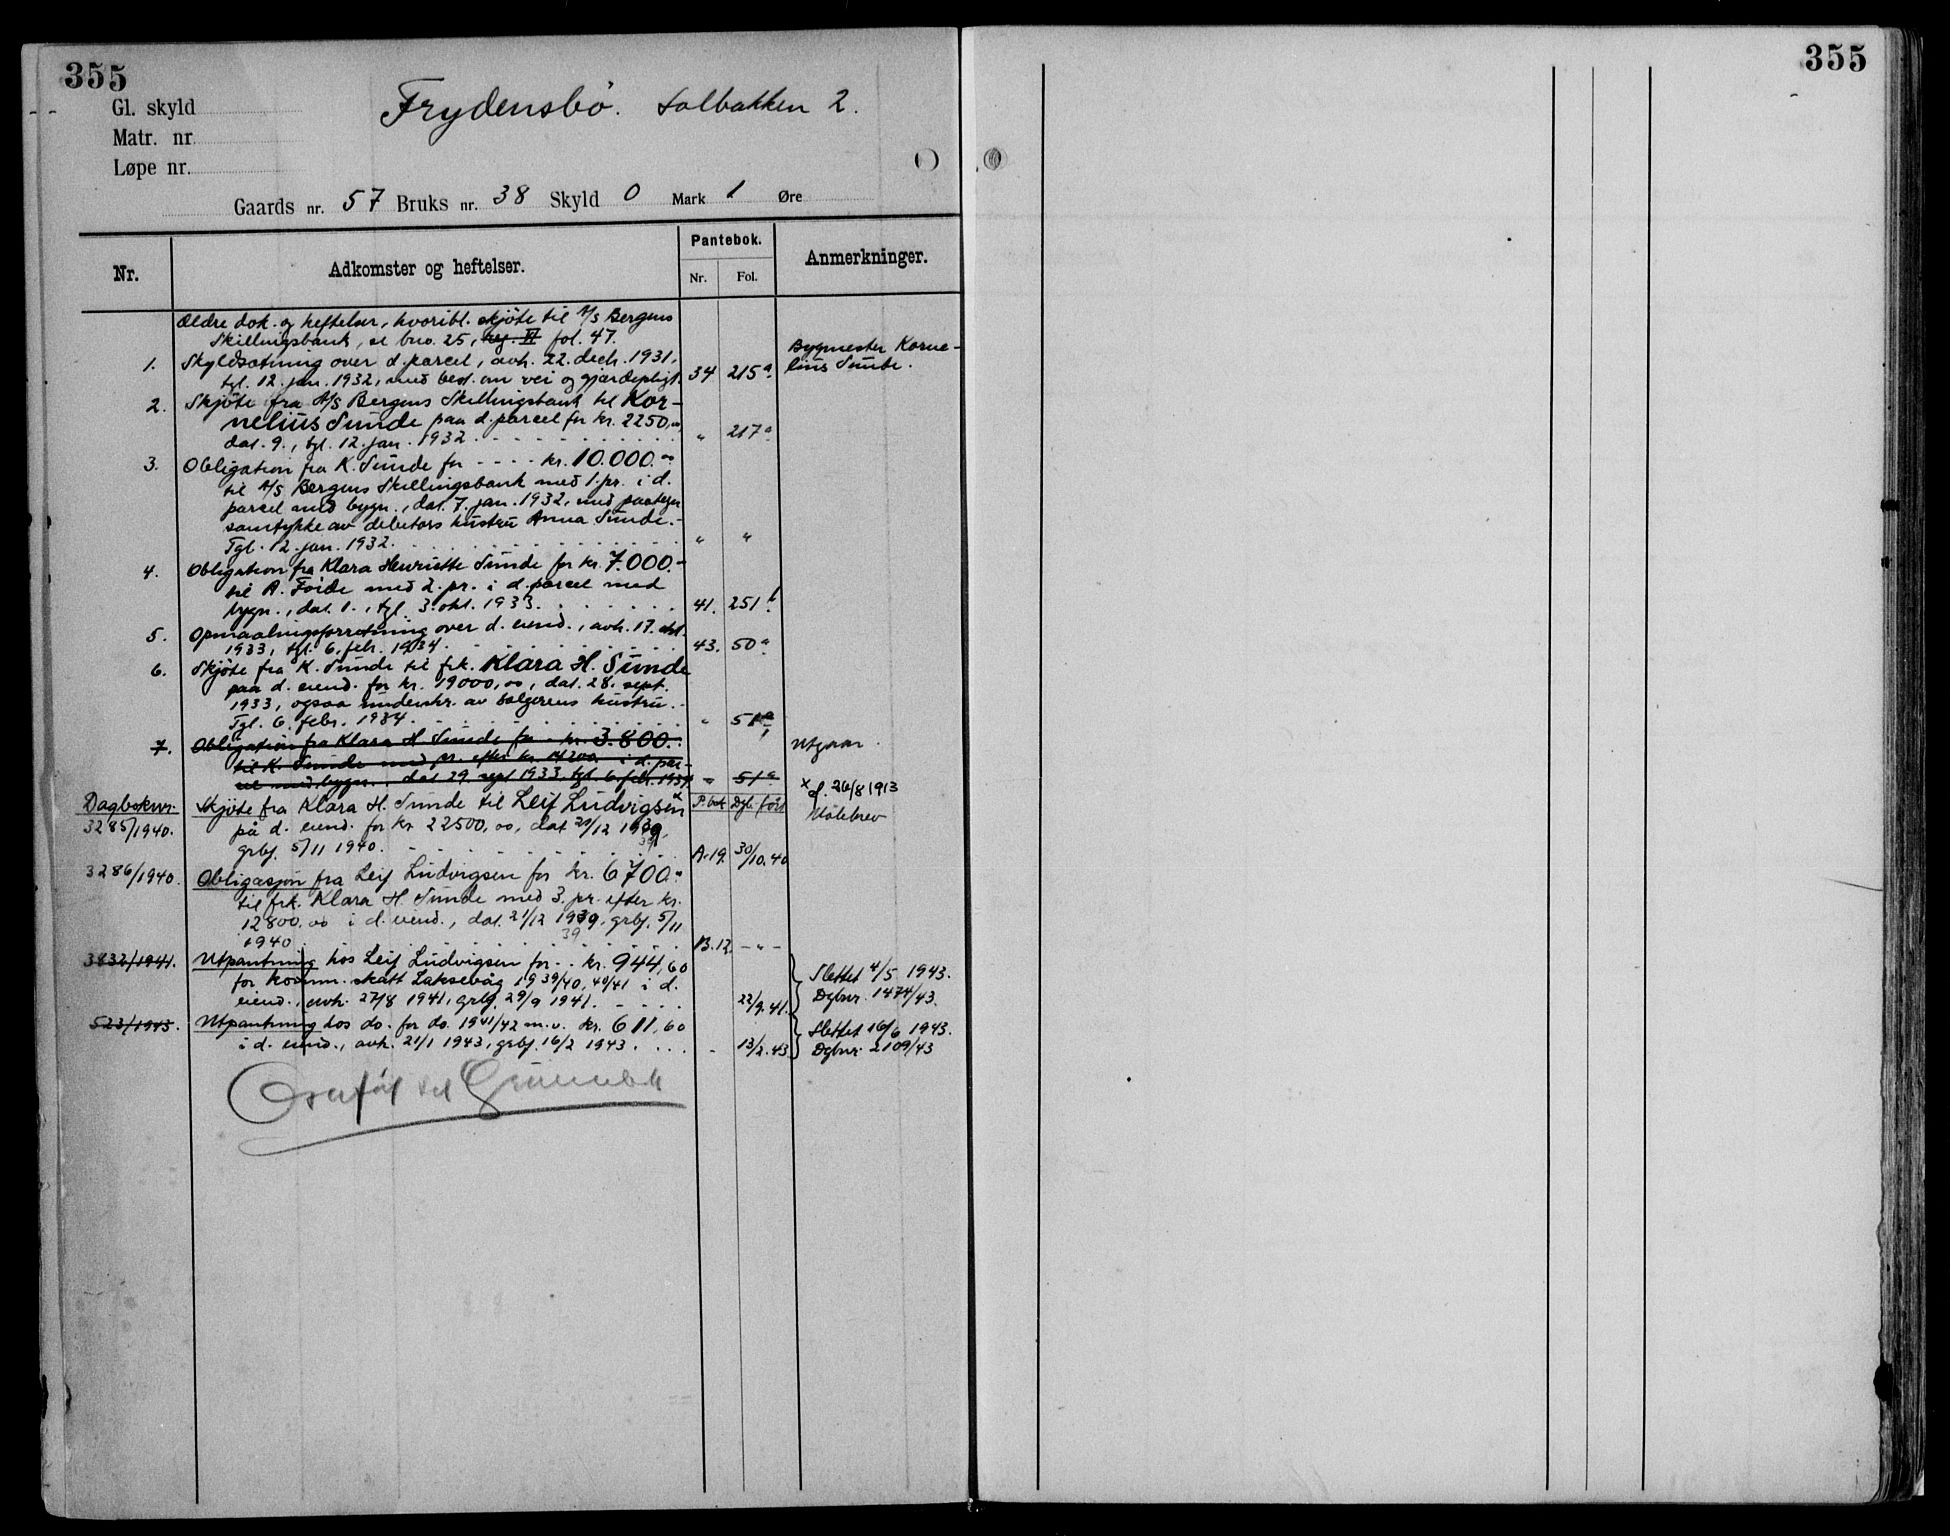 355
355
Gl. skyld
Matr. nr.
Løpe nr.
Frydensbø. Solbakken 2.
Gaards nr. 57 Bruks nr. 38 Skyld 0 Mark 1 Øre
Nr. Adkomster og heftelser. Pantebok. Anmerkninger.
Nr. Fol.
Ældre dok. og heftelser, hvoribl. skjøte til A/S Bergens
Skillingsbank, se bno. 25, reg. VI fol. 47.
1. Skyldsætning over d. parcel, avh. 22. decb. 1931,
tgl. 12. jan. 1932, med best. om vei og gjærdepligt. 34 215a
Bygmester Korne-
lius Sunde.
2. Skjøte fra A/S Bergens Skillingsbank til Kor-
nelius Sunde paa d. parcel for kr. 2250,00,
dat. 9., tgl. 12. jan. 1932 " 217a
3. Obligation fra K. Sunde for - - - - kr. 10.000.00
til A/S Bergens Skillingsbank med 1. pr. i d.
parcel med bygn., dat. 7. jan. 1932, med paategn
samtykke av debitors hustru Anna Sunde.-
Tgl. 12. jan. 1932. " "
4. Obligation fra Klara Henriette Sunde for kr. 7.000.-
til A. Foide med 2. pr. i d. parcel med
bygn., dat. 1., tgl. 3. okt. 1933. 41. 251b
5. Opmaalingsforretning over d. eiend., avh. 17. okt.
1933, tgl. 6. febr. 1934. 43. 50a
6. Skjøte fra K. Sunde til frk. Klara H. Sunde
paa d. eiend. for kr. 19000,00, dat. 28. sept.
1933, ogsaa underskr. av sælgerens hustru.-
Tgl. 6. febr. 1934. " 51a
7. Obligation fra Klara H. Sunde for - kr. 3.800.-
til K. Sunde med pr. efter kr. 17200 i d. par-
cel med bygn., dat 29. sept 1933, tgl. 6. febr. 1934 " 51a
Utgaar.
Dagboknr. Skjøte fra Klara H. Sunde til Leif Ludvigsen x P.bok Dgb. ført
x f. 26/8 1913
3285/1940. på d. eiend. for kr 22500,00, dat 21/12 1939,
39
Målebrev
grbf. 5/11 1940. A.19. 30/10.40
3286/1940. Obligasjon fra Leif Ludvigsen for kr. 6700.00
til frk. Klara H. Sunde med 3. pr. efter kr.
12800,00 i d. eiend., dat. 21/12 1939, grbf. 5/11
39
1940 B.12. - " -
3832/1941. Utpantning hos Leif Ludvigsen for - - kr. 944,60
for komm. skatt Laksevåg 1939/40, 40/41 i d.
eiend., avh. 27/8 1941, grbf. 29/9 1941. 22/9.41.
Slettet 4/5 1943.
Dgbnr. 1474/43.
523/1943. Utpantning hos do. for do. 1941/42 m.v. kr. 611,60
i d. eiend., avh. 21/1 1943, grbf. 16/2 1943. - 13/2.43
Slettet 16/6 1943.
Dgbnr. 2109/43
Overført til Grunnbok